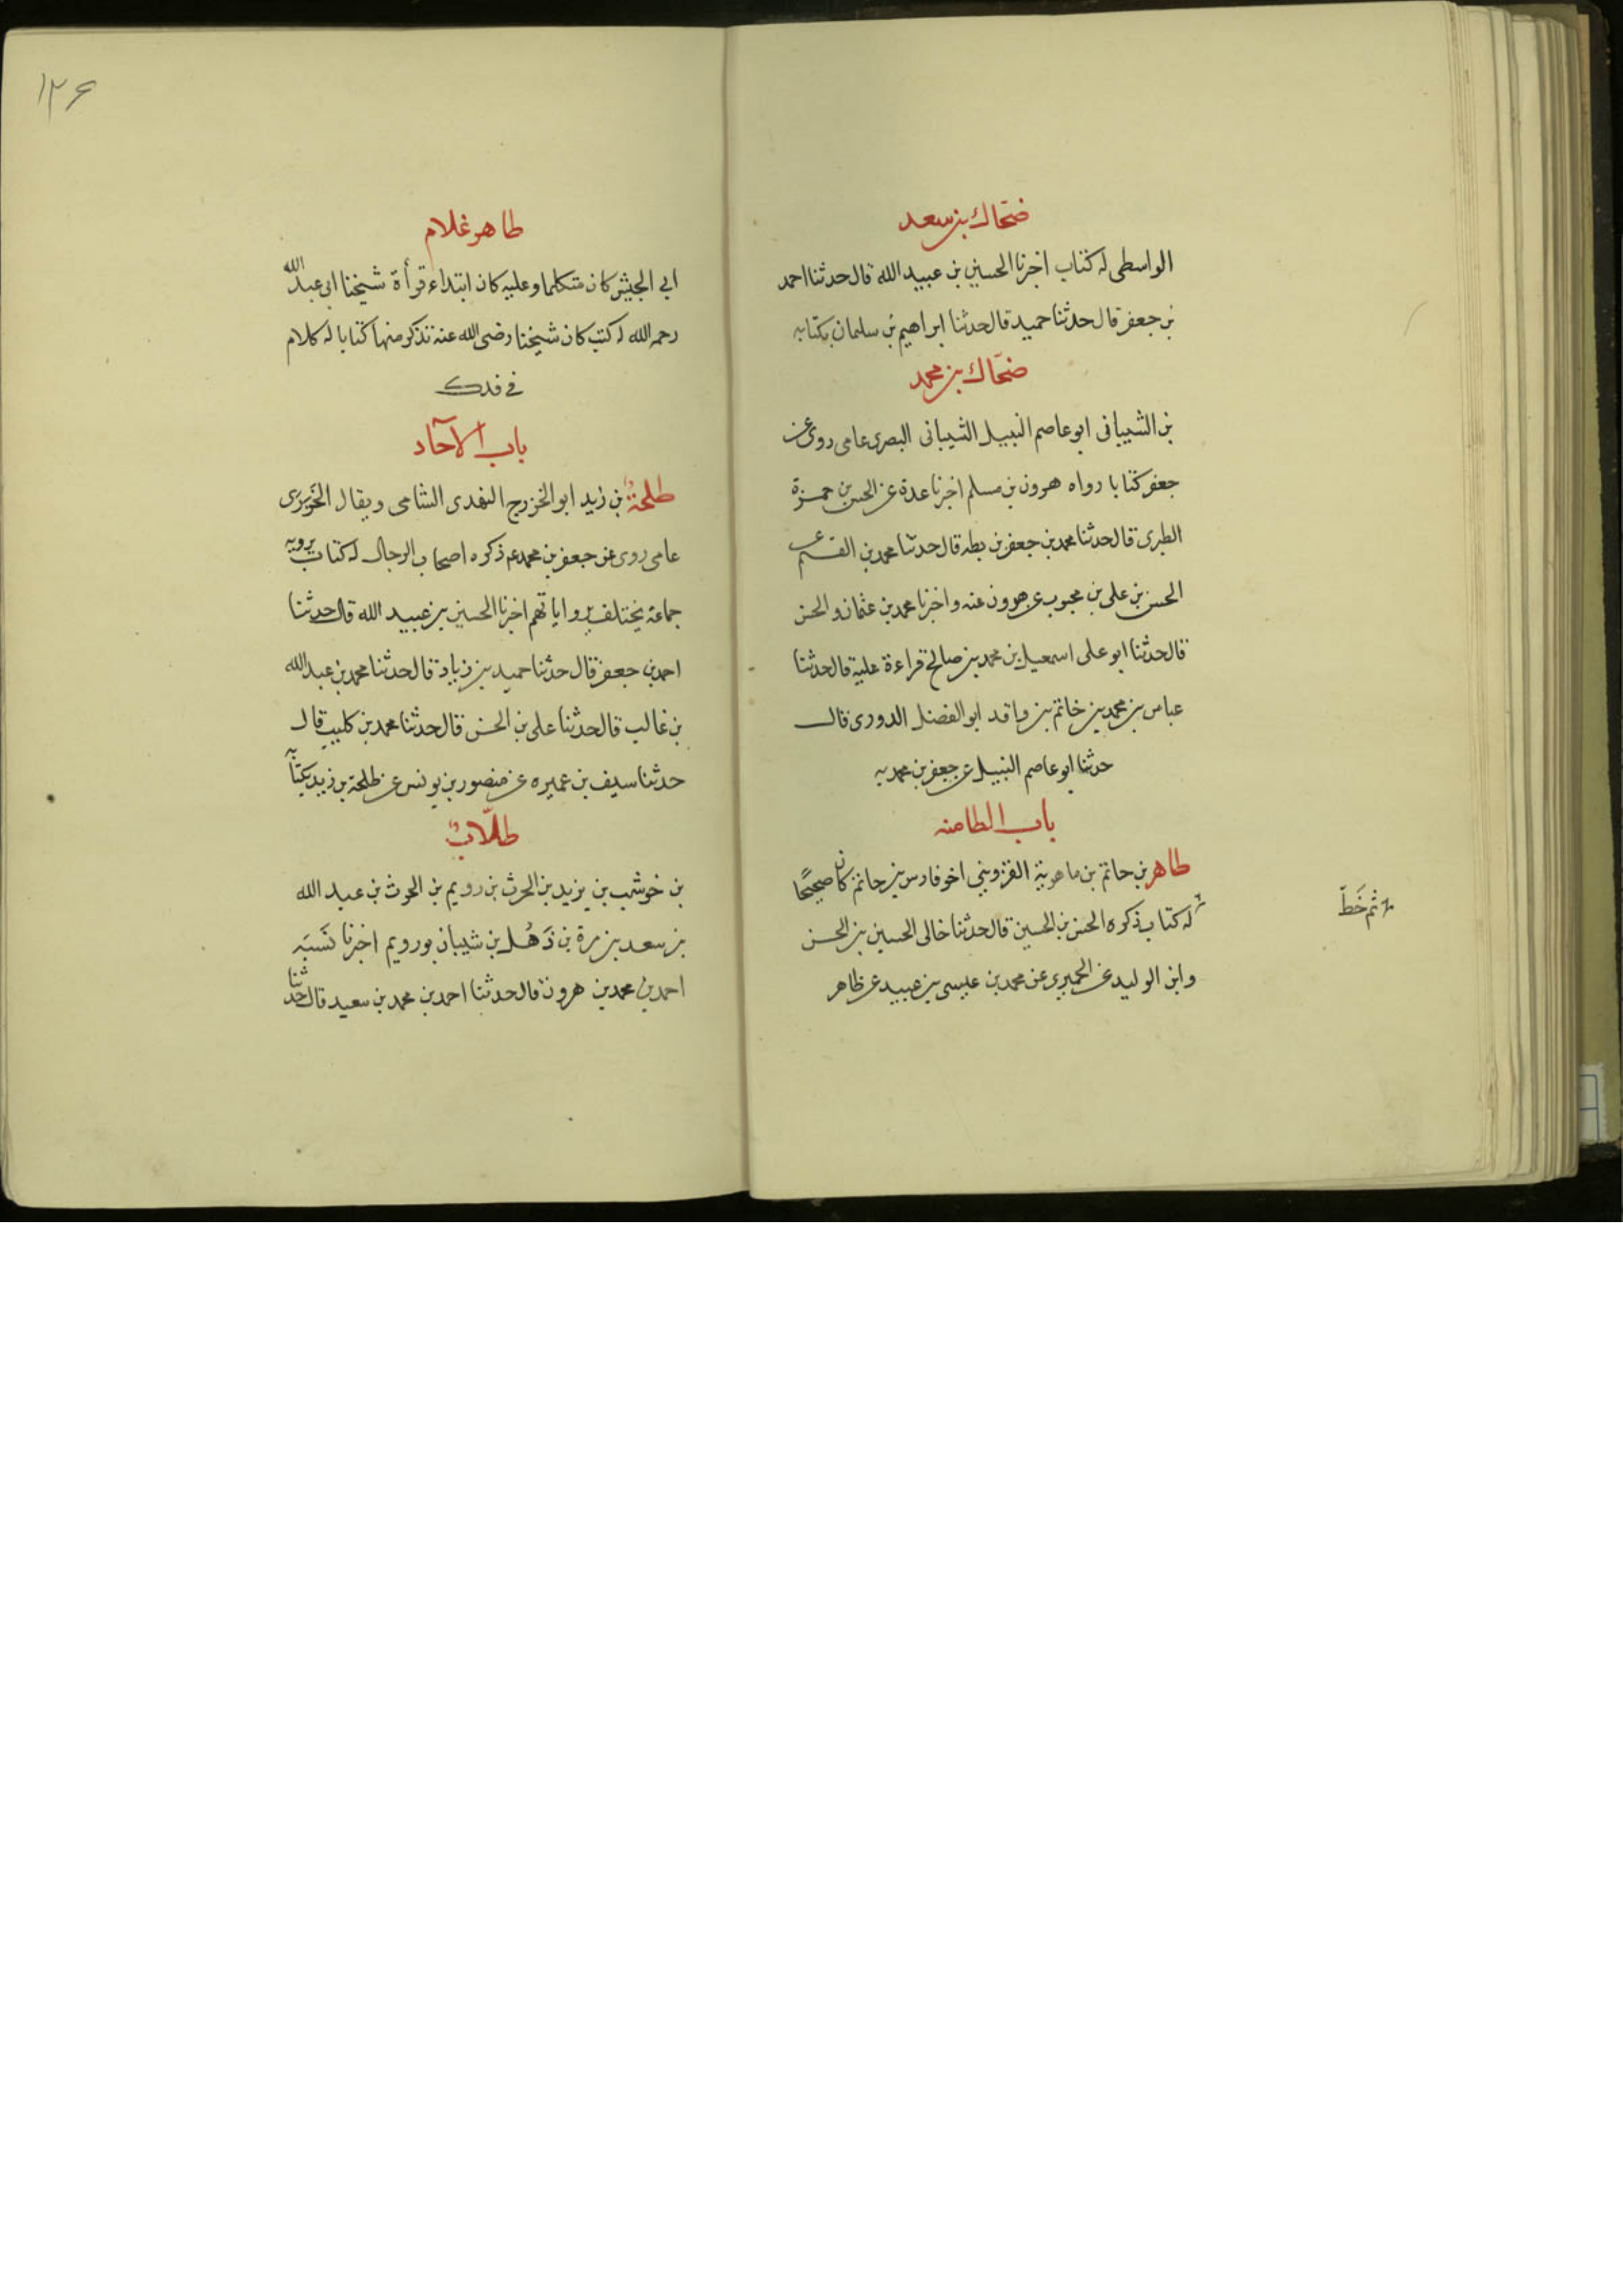 ضحاك بن سعد
الواسطى له كتاب اخبرنا الحسين بن عبيد الله قال حدثنا احمد
بن جعفر قال حدثنا حميد قال حدثنا ابراهيم بن سلمان بكتابه
ضحّاك بن محمد
بن الشيبانى ابو عاصم النبيل الشيبانى البصرى عامى روى عن
جعفر كتابا رواه هرون بن مسلم اخبرنا عدة عن الحسن بن حمزة
الطبرى قال حدثنا محمد بن جعفر بن بطه قال حدثنا محمد بن القسم عن
الحسن بن على بن محبوب عن هرون عنه واخبرنا محمد بن عثمان والحسن
قال حدثنا ابو على اسمعيل بن محمد بن صالح قراءة عليه قال حدثنا
عباس بن محمد بن خاتم بن واقد ابو الفضل الدورى قال
حدثنا ابو عاصم النبيل عن جعفر بن محمد به
باب الطا منه
طاهر بن حاتم بن ماهوية القزوينى اخو فارس بن حاتم كان صحيحًا
له كتاب ذكره الحسن بن الحسين قال حدثنا خالى الحسين بن الحسن
ثم خَطَّ
وابن الوليد عن الحميرى عن محمد بن عيسى بن عبيد عن ظاهر
١٢۶
طاهر غلام
ابى الجيش كان متكلما وعليه كان ابتداء قرأة شيخنا ابى عبد الله
رحمه الله له كتب كان شيخنا رضى الله عنه نذكر منها كتابا له كلام
فى فدك
باب الآحاد
طلحةُ بن زيد ابو الخزرج النهدى الشامى ويقال الخَزرى
عامى روى عن جعفر بن محمد ع م ذكره اصحاب الرجال له كتاب يرويه
جماعة يختلف برواياتهم اخبرنا الحسين بن عبيد الله قال حدثنا
احمد بن جعفر قال حدثنا حميد بن زياد قال حدثنا محمد بن عبد الله
بن غالب قال حدثنا على بن الحسن قال حدثنا محمد بن كليب قال
حدثنا سيف بن عميره عن منصور بن يونس عن طلحة بن زيد بكتابه
طلّابُ
بن خوشب بن يزيد بن الحرث بن رويم بن الحرث بن عبد الله
بن سعد بن مرة بن ذَهُل بن شيبان بو رويم اخبرنا نَسَبَه
احمد بن محمد بن هرون قال حدثنا احمد بن محمد بن سعيد قال حدثنا